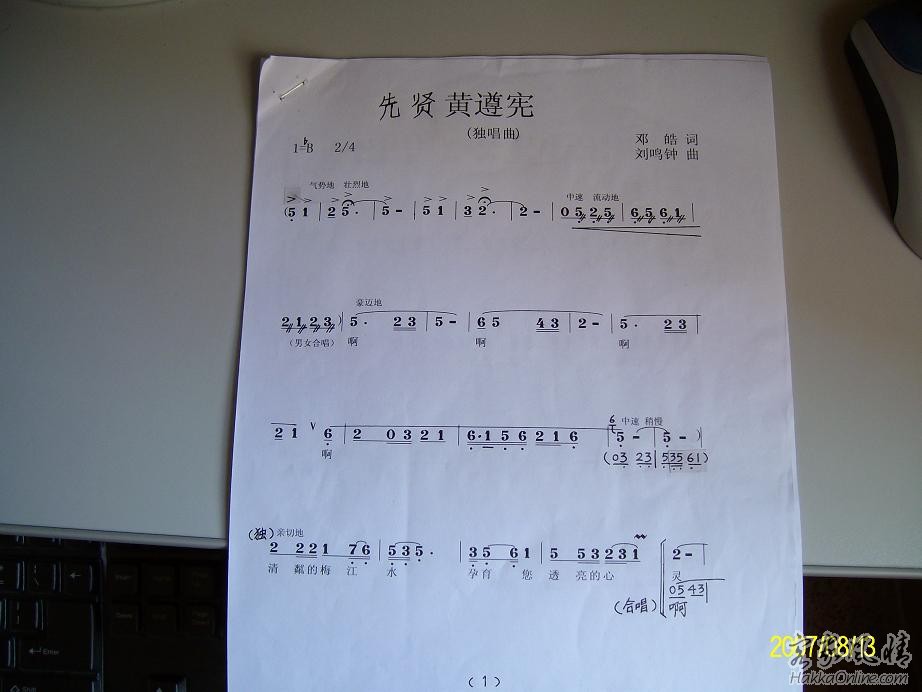 先贤黄遵宪
(独唱曲)
1=♭B 2/4
邓皓 词
刘鸣钟 曲
气势地 壮烈地
中速 流动地
(5 1 | 2 5 . | 5 - | 5 1 | 3 2 . | 2 - | 0 5 2 5 | 6 5 6 1 |
豪迈地
2 1 2 3 ) | 5 . 2 3 | 5 - | 6 5 4 3 | 2 - | 5 . 2 3 |
(男女合唱) 啊 啊 啊
中速 稍慢
2 1 V 6 | 2 0 3 2 1 | 6 · 1 5 6 2 1 6 | 6 5 - | 5 - )
啊
(0 3 2 3 | 5 3 5 6 1 )
(独) 亲切地
2 2 2 1 7 6 | 5 3 5 . | 3 5 6 1 | 5 5 3 2 3 1 | 2 - |
清粼的梅江水 孕育您透亮的心灵
(合唱) 0 5 4 3
啊
(1)
2007/08/13
客家风情
HakkaOnline.com